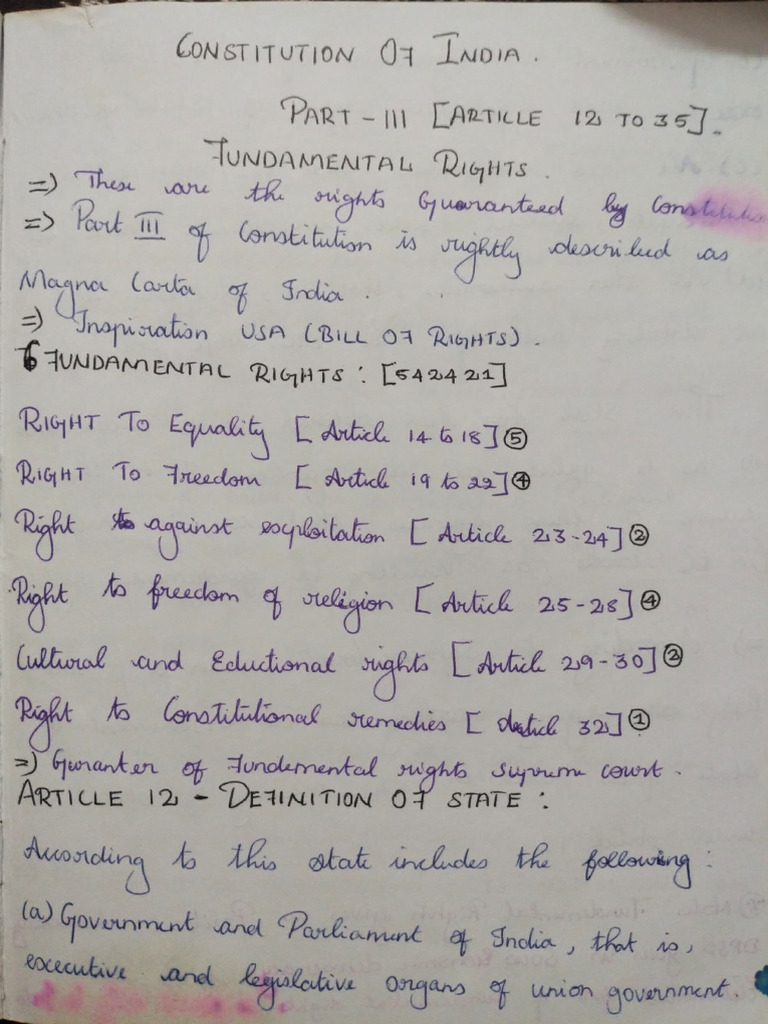 CONSTITUTION OF INDIA.
PART-III [ARTICLE 12 TO 35].
FUNDAMENTAL RIGHTS.
=) These are the rights Guaranteed by Constitution
=) Part III of Constitution is rightly described as
Magna Carta of India.
=) Inspiration USA (BILL OF RIGHTS).
6 FUNDAMENTAL RIGHTS: [542421]
RIGHT TO Equality [Article 14 to 18] ⑤
RIGHT TO Freedom [Article 19 to 22] ④
Right against exploitation [Article 23-24] ②
Right to freedom of religion [Article 25-28] ④
Cultural and Eductional rights [Article 29-30] ②
Right to Constitutional remedies [Article 32] ①
=) Guranter of Fundemental rights supreme court.
ARTICLE 12 - DEFINITION OF STATE:
According to this state includes the following:
(a) Government and Parliament of India, that is,
executive and legislative organs of union government.